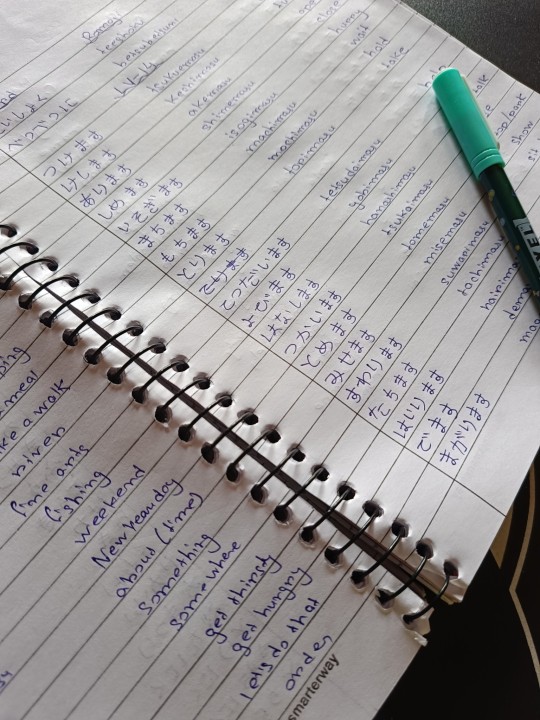 つけます
けします
あけます
しめます
いそぎます
まちます
もちます
とります
てつだいます
よびます
はなします
つかいます
とめます
みせます
すわります
たちます
はいります
でます
まがります
Romaji
tsukemasu
keshimasu
akemasu
shimemasu
isogimasu
machimasu
mochimasu
topimasu
tetsudaimasu
yobimasu
hanashimasu
tsukaimasu
tomemasu
misemasu
suwarimasu
tachimasu
close
hurry
wait
hold
take
help
show
sit
meal
ke a walk
river
fine arts
fishing
weekend
New Year day
about (time)
something
somewhere
get thirsty
get hungry
let's do that
order
smarterway